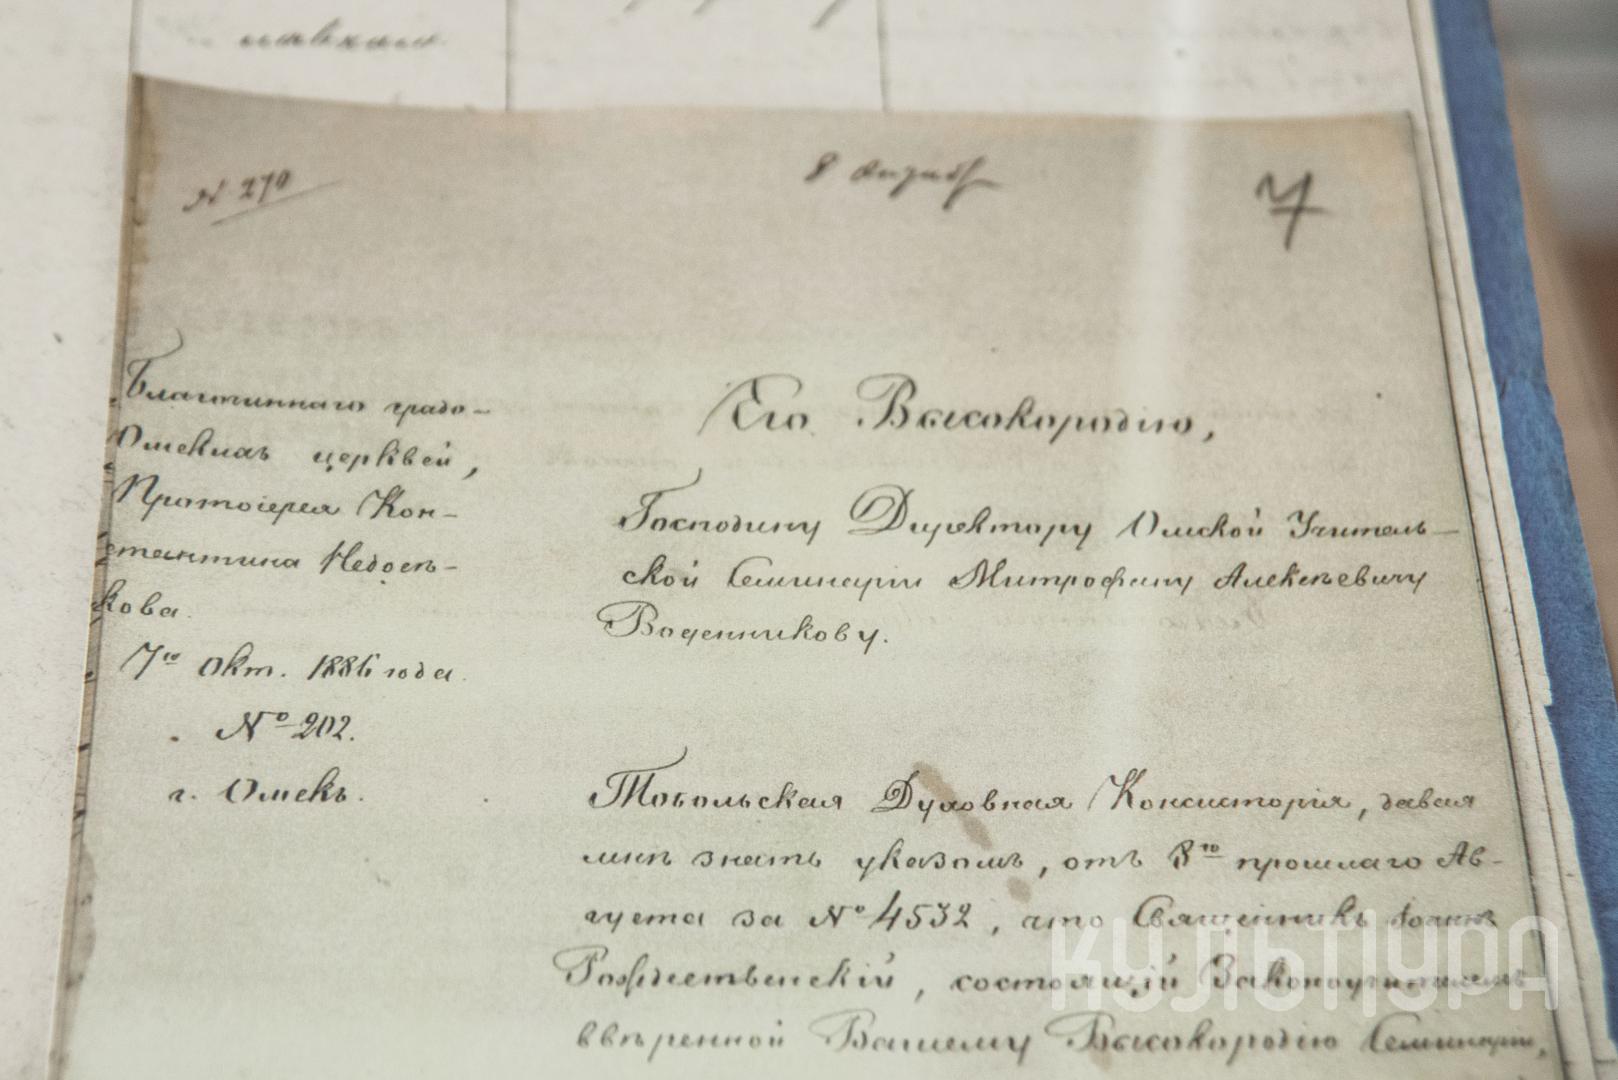 № 270
8 октяб
7
Благочиннаго градо-
Омскихъ церквей,
Протоіерея Кон-
стантина Недосѣ-
кова.
7го Окт. 1886 года.
№ 202.
г. Омскъ.
Его Высокородію,
Господину Директору Омской Учитель-
ской Семинаріи Митрофану Алексѣевичу
Водянникову.
Тобольская Духовная Консисторія, давая
мнѣ знать указомъ, отъ 8го прошлаго Ав-
густа за № 4532, что Священникъ Іоаннъ
Рождественскій, состоящій Законоучителемъ
ввѣренной Вашему Высокородію Семинаріи,
КУЛЬТУРА